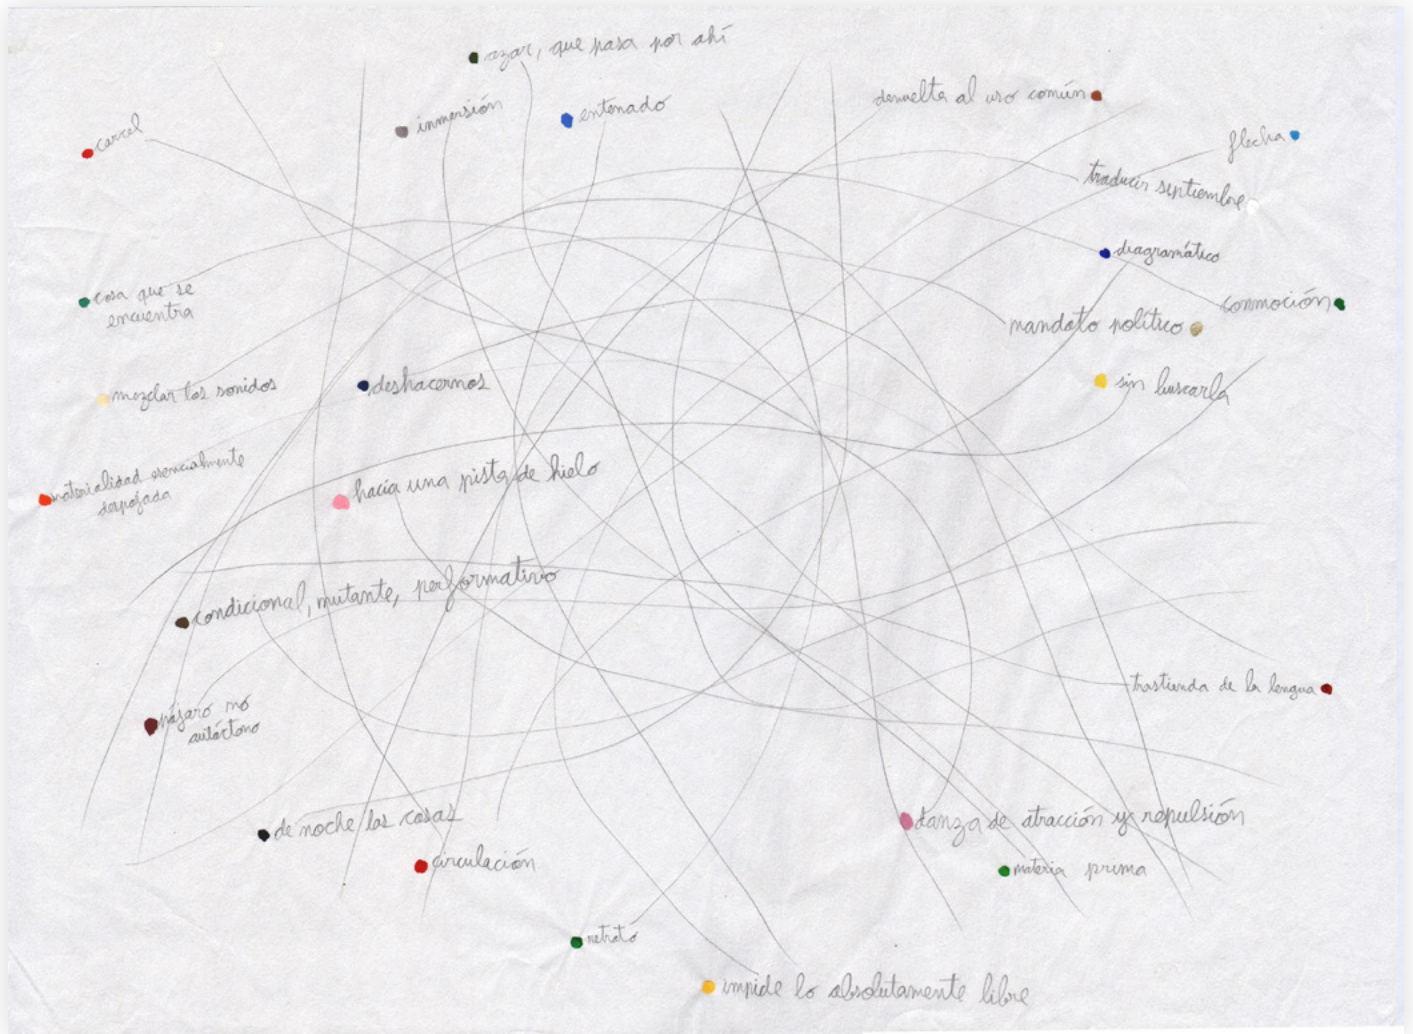 azar, que pasa por ahí
devuelta al uso común
inmersión
entenado
carcel
flecha
traducir septiembre
diagramático
cosa que se
encuentra
conmoción
mandato político
mezclar los sonidos
deshacernos
sin buscarla
materialidad esencialmente
despojada
hacia una pista de hielo
condicional, mutante, performativo
trastienda de la lengua
pájaro no
autóctono
de noche las cosas
danza de atracción y repulsión
circulación
materia prima
retrato
impide lo absolutamente libre